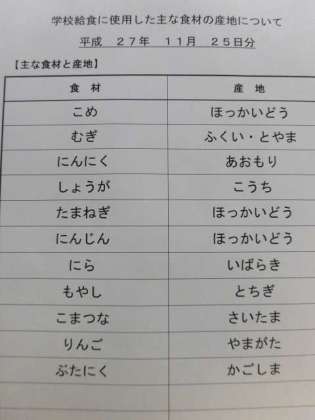 学校給食に使用した主な食材の産地について
平成 27年 11月 25日分
【主な食材と産地】
食 材 産 地
こめ ほっかいどう
むぎ ふくい・とやま
にんにく あおもり
しょうが こうち
たまねぎ ほっかいどう
にんじん ほっかいどう
にら いばらき
もやし とちぎ
こまつな さいたま
りんご やまがた
ぶたにく かごしま